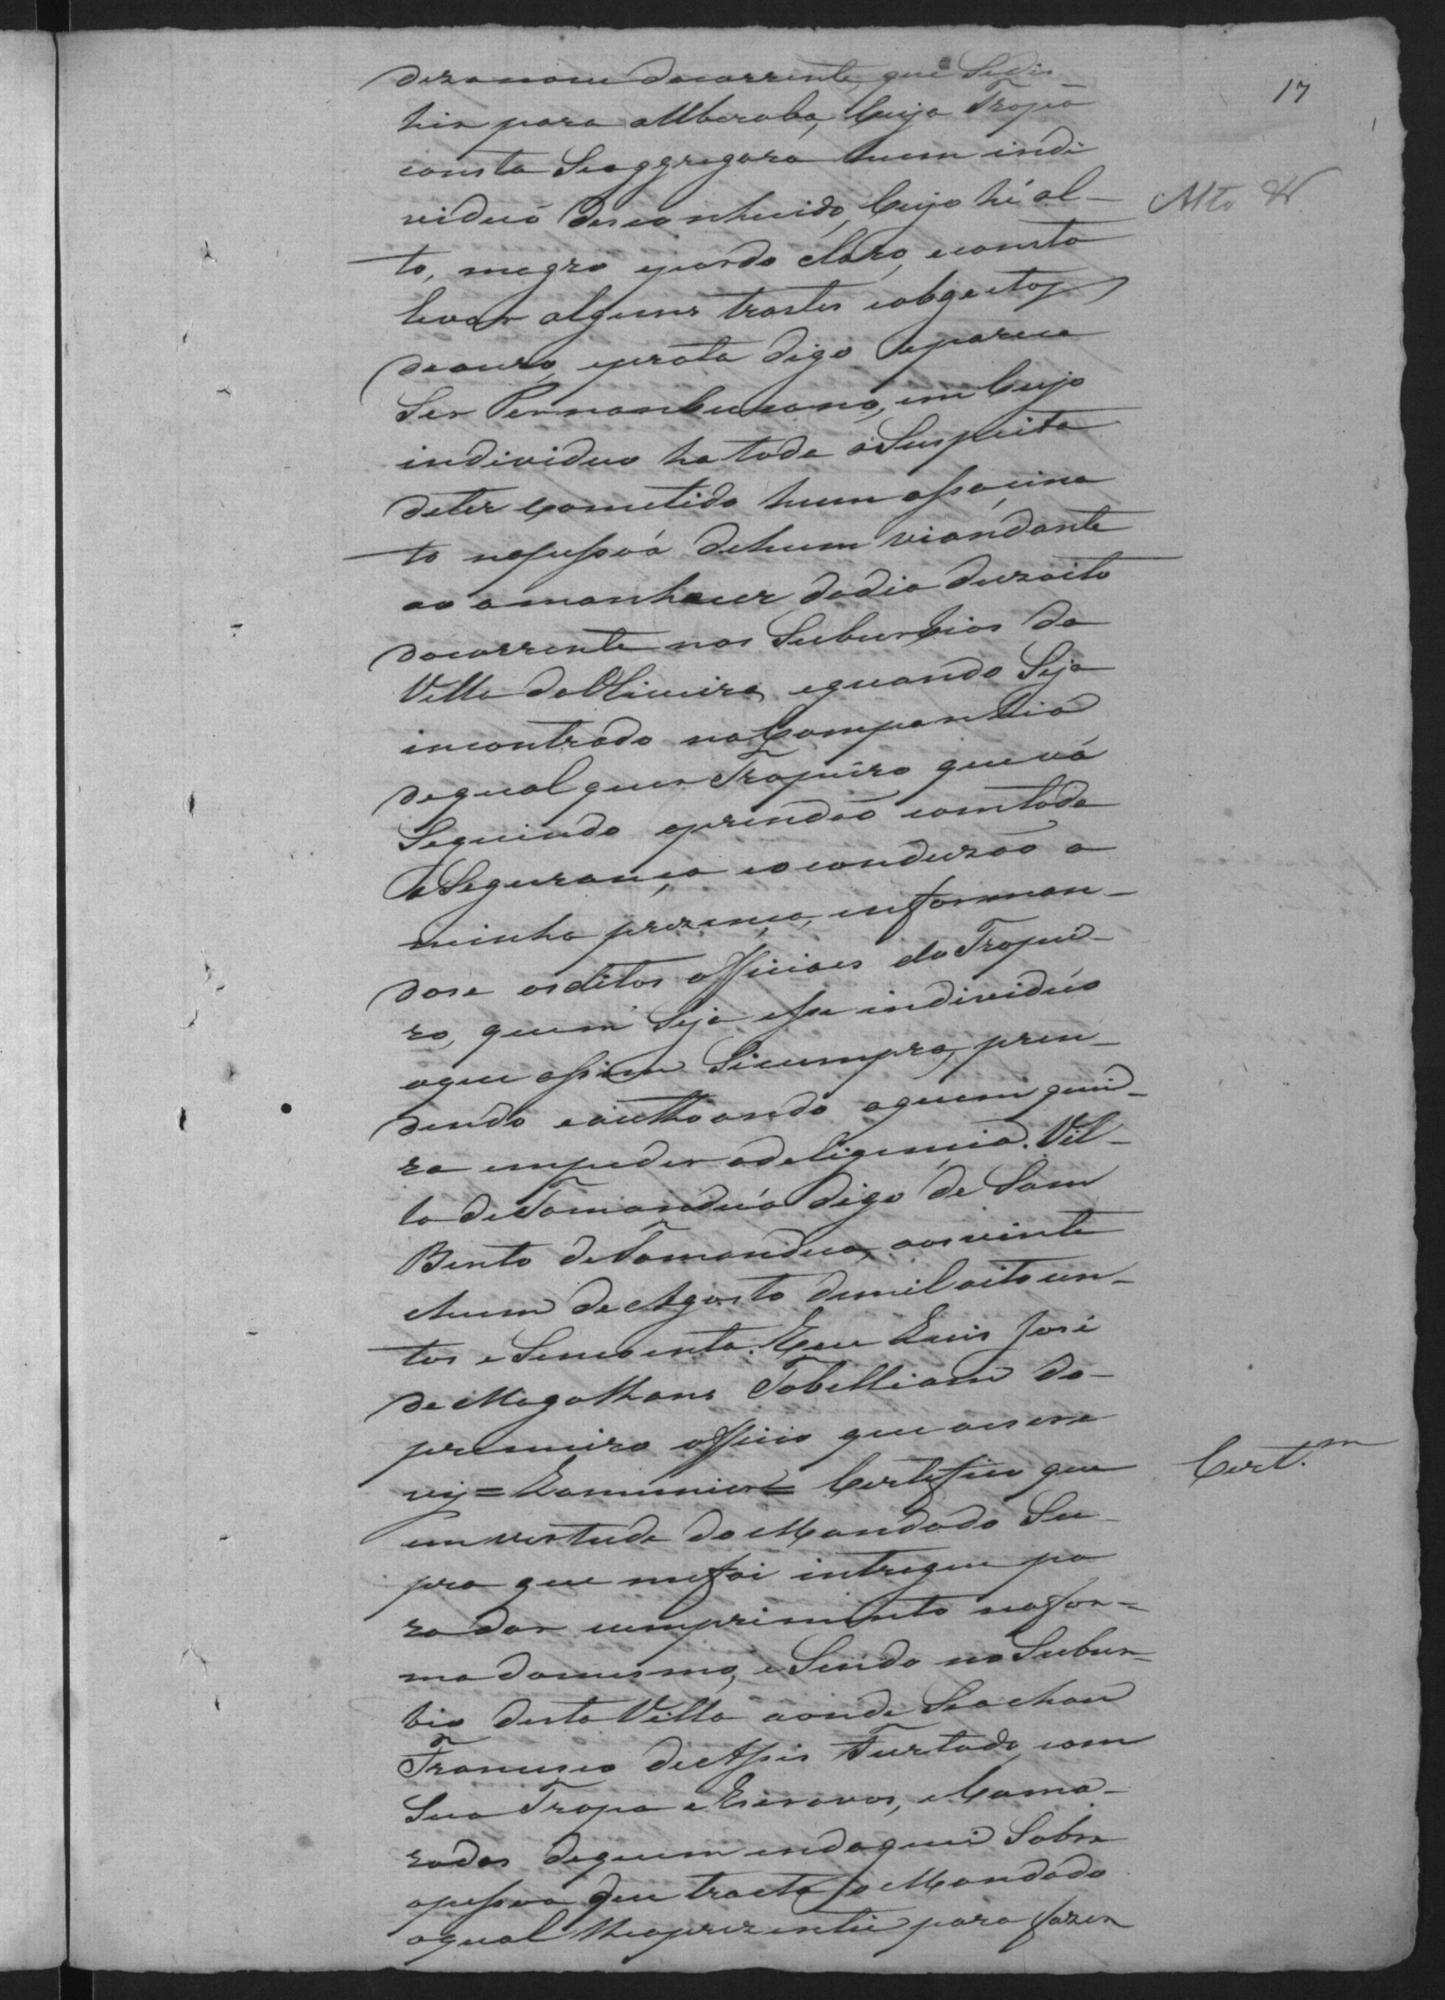 17
dezanove docorrente, que Sedis
hia para aUberaba, Cuja Tropa
consta Seaggregara hum indi
viduo desconhecido, Cujo hé al-
Alto &
to, magro epardo claro, econsta
levar alguns trastes eobgectos
deouro, eprata digo eparece
Ser Pernambucano, em Cujo
individuo ha toda aSuspeita
deter Cometido hum assacina
to napessoá dehum viandante
ao amanhecer dodia dezoito
docorrente nos Suburbios da
Villa daOliveira, equando Seja
incontrado naCompanhia
dequal quer Tropeiro que vá
Seguindo oprendão comtoda
aSegurança eoconduzão a
minha prezença, informan-
dose osditos officiaes doTropei-
ro, quem Seja esse individúo
oque assim Secumpra, pren-
dendo eauthoando aquem quei-
ra empedir adeligencia. Vil-
la deTamanduá digo de Sam
Bento deTamandua, aosvinte
ehum deAgosto demil oitocen-
tos eSencoenta. Eeu Luis José
deMagalhans Tabelliam do-
premeiro officio que oescre
vy = Lamounier = Certefico que
Cert.m
em vertude doMandado Su-
pra que mefoi intregue pa
ra dar cumprimento nafor=
ma domesmo, eSendo noSubur=
bio desta Villa aonde Seachava
Francisco deAssis Furtado, com
Sua Tropa eEscravos, eCama-
radas dequem endaguei Sobre
apessoa que tracta oMandado
aqual lheaprezentei para fazer